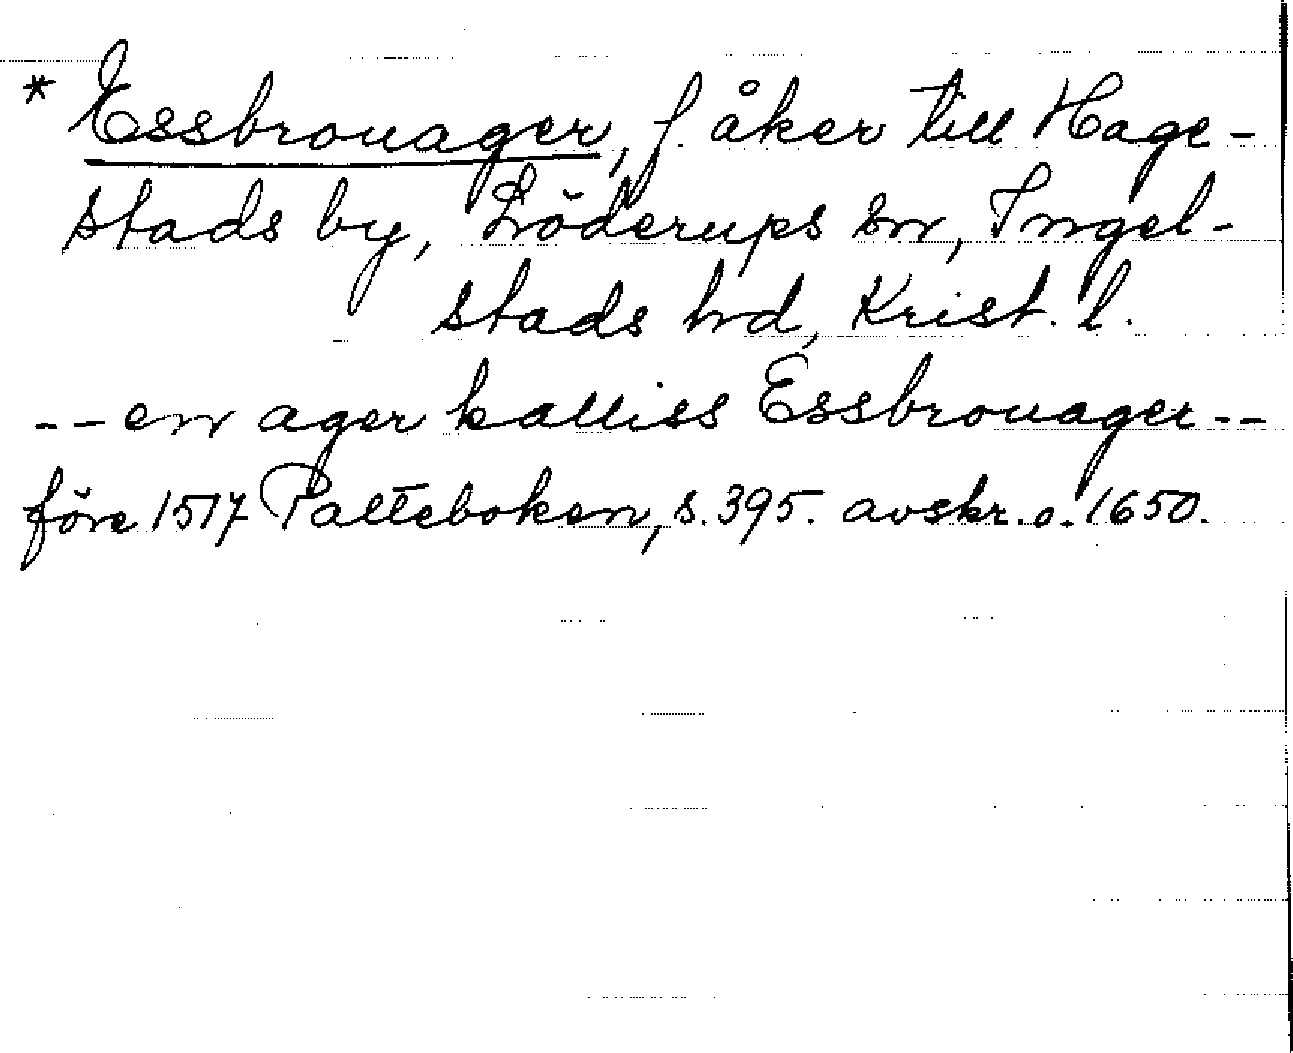 * Essbrouager, f. åker till Hage-
stads by, Löderups sn, Ingel-
stads hd, Krist. l.
-- en ager kalliss Essbrouager --
före 1517 Palteboken, s. 395. avskr. o. 1650.